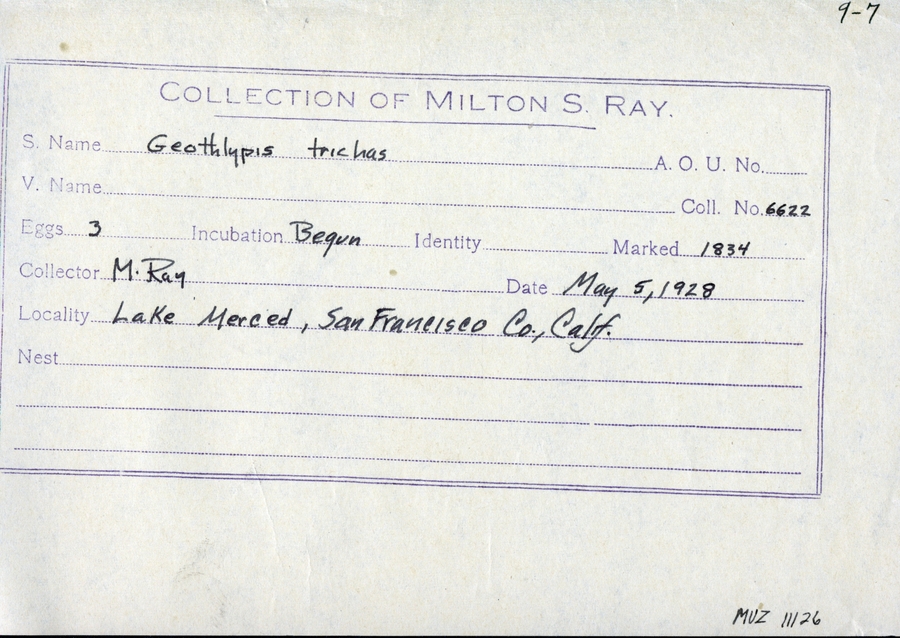 9-7
COLLECTION OF MILTON S. RAY.
S. Name Geothlypis trichas A. O. U. No.
V. Name Coll. No. 6622
Eggs 3 Incubation Begun Identity Marked 1834
Collector M. Ray Date May 5, 1928
Locality Lake Merced, San Francisco Co., Calif.
Nest
MVZ 11126